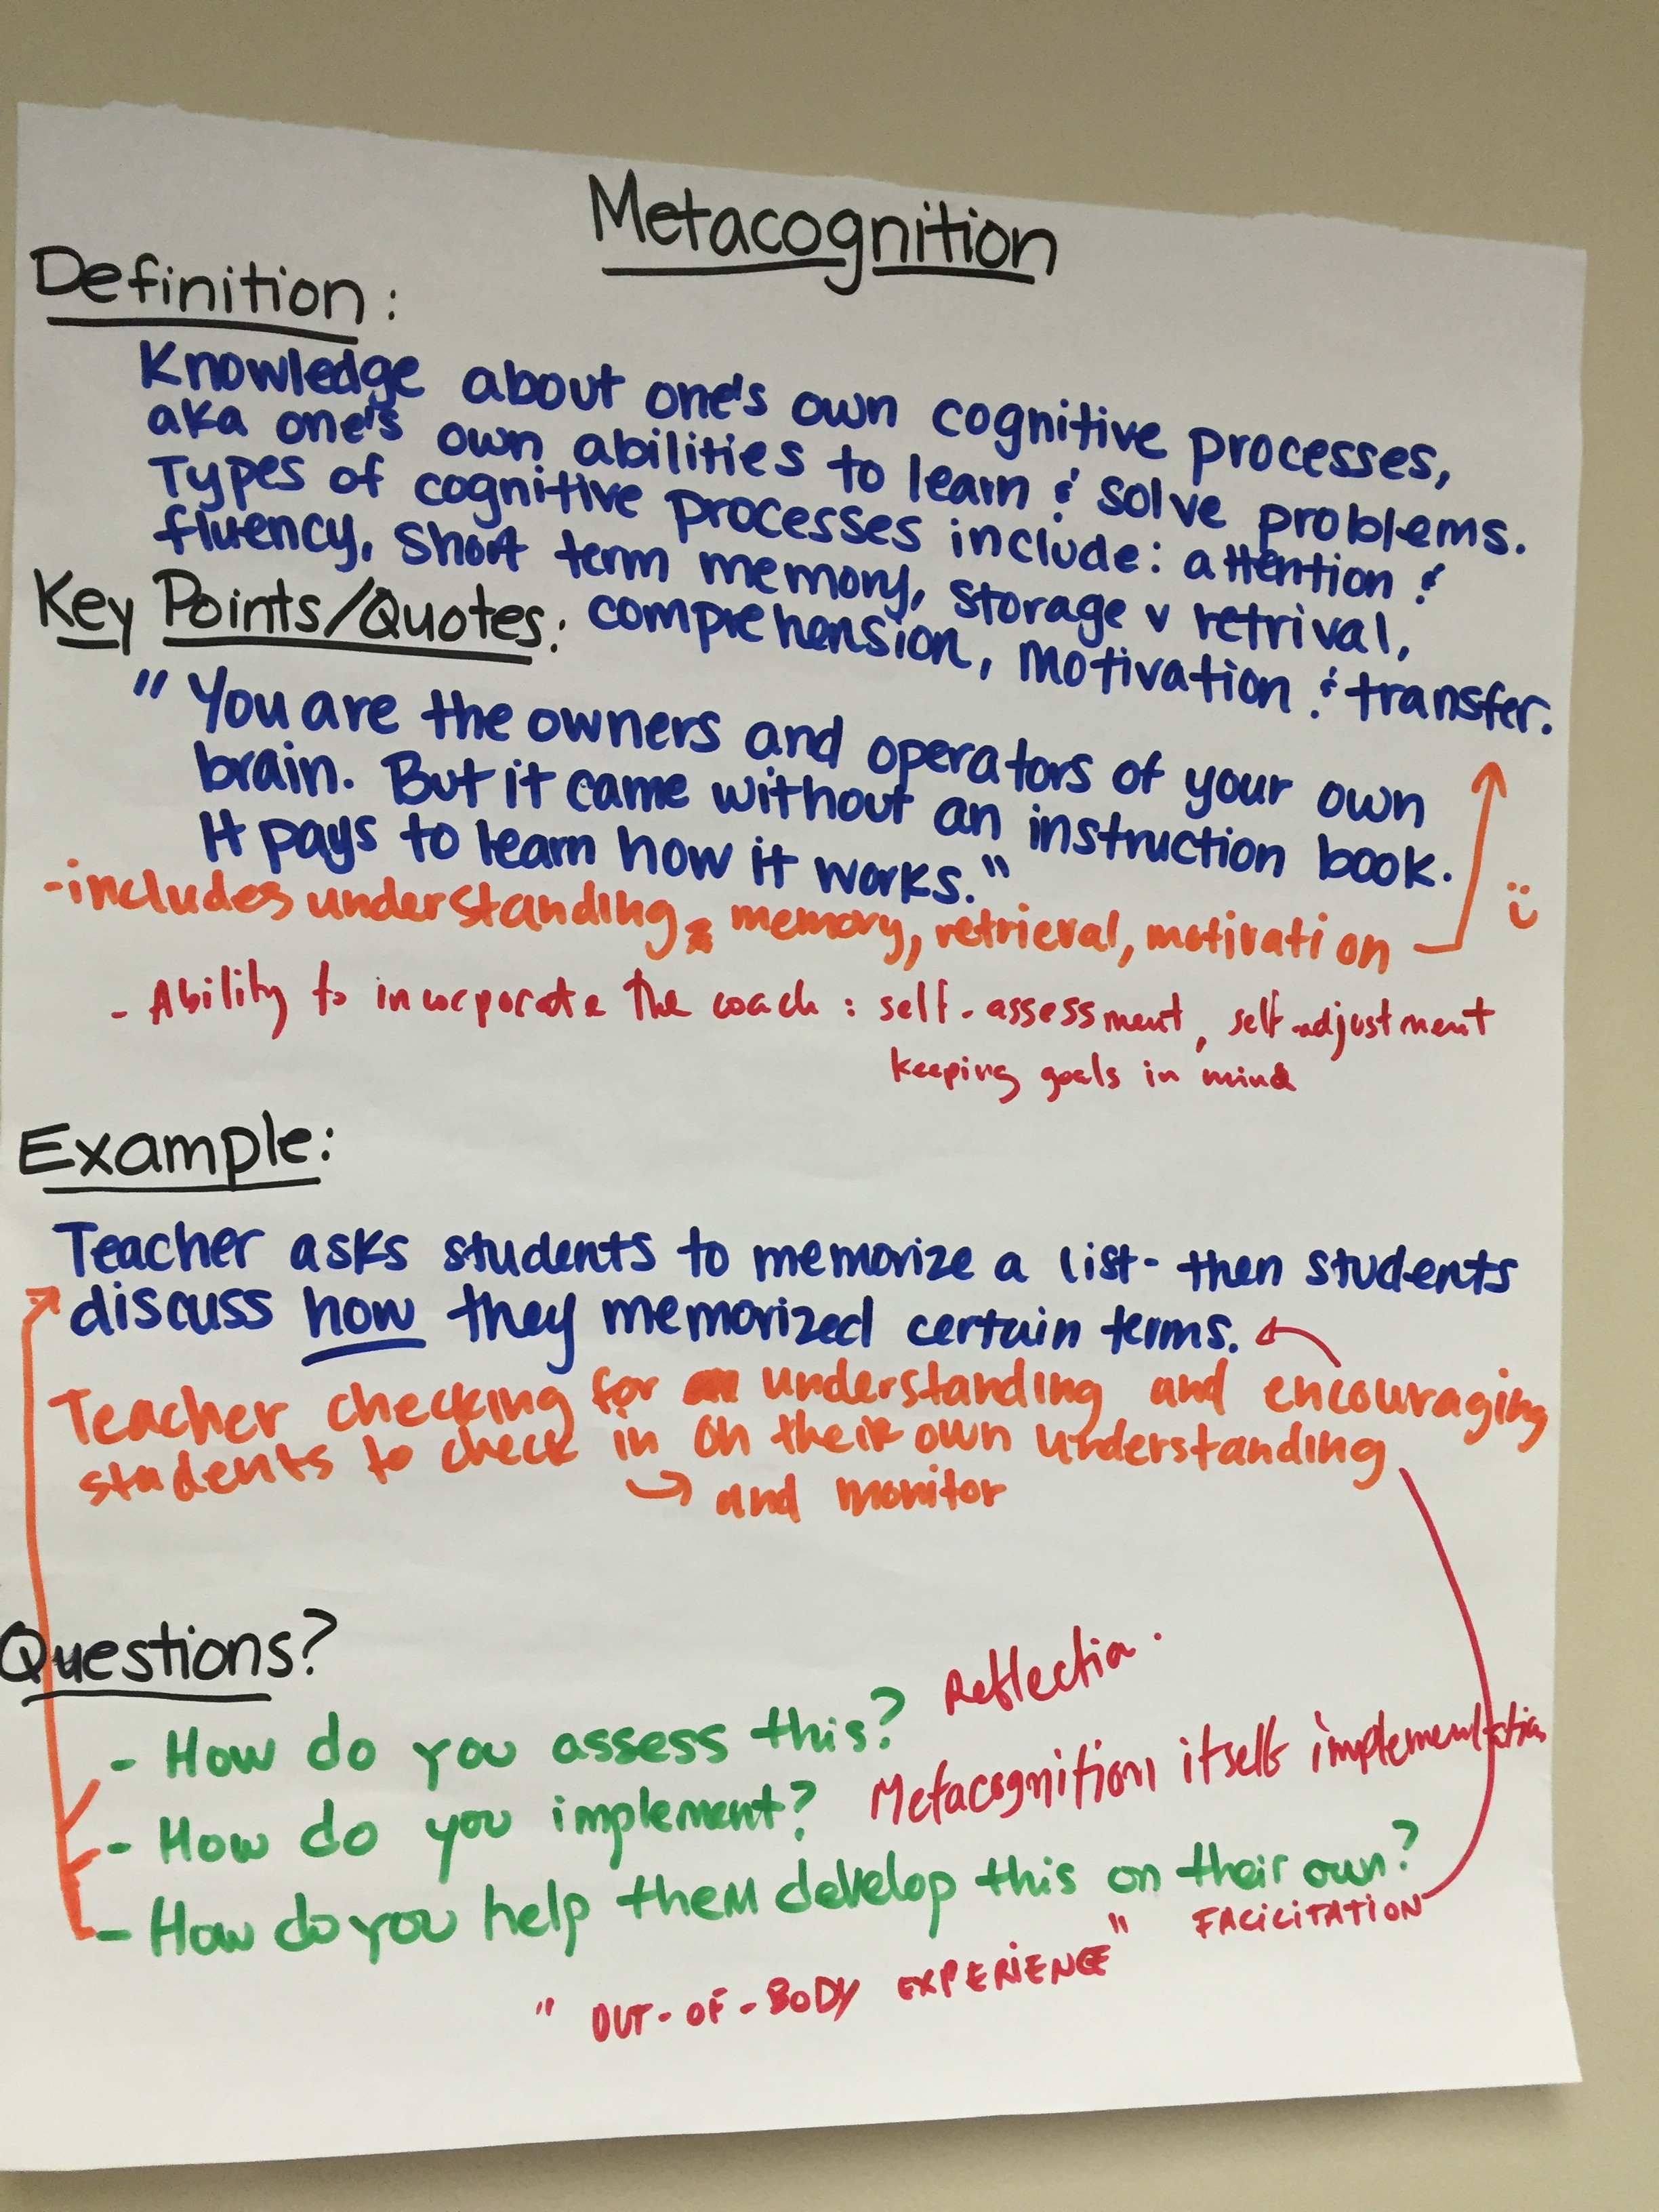 Metacognition
Definition:
Knowledge about one's own cognitive processes,
aka one's own abilities to learn & solve problems.
Types of cognitive processes include: attention &
fluency, short term memory, storage v retrival,
comprehension, motivation & transfer.
Key Points/Quotes:
"You are the owners and operators of your own
brain. But it came without an instruction book.
It pays to learn how it works."
-includes understanding, memory, retrieval, motivation
- Ability to incorporate the coach: self-assessment, self-adjustment
keeping goals in mind
Example:
Teacher asks students to memorize a list- then students
discuss how they memorized certain terms.
Teacher checking for understanding and encouraging
students to check in on their own understanding
and monitor
Questions?
- How do you assess this? Reflection.
- How do you implement? Metacognition itself implementation
- How do you help them develop this on their own?
FACICITATION
"OUT-OF-BODY EXPERIENCE"